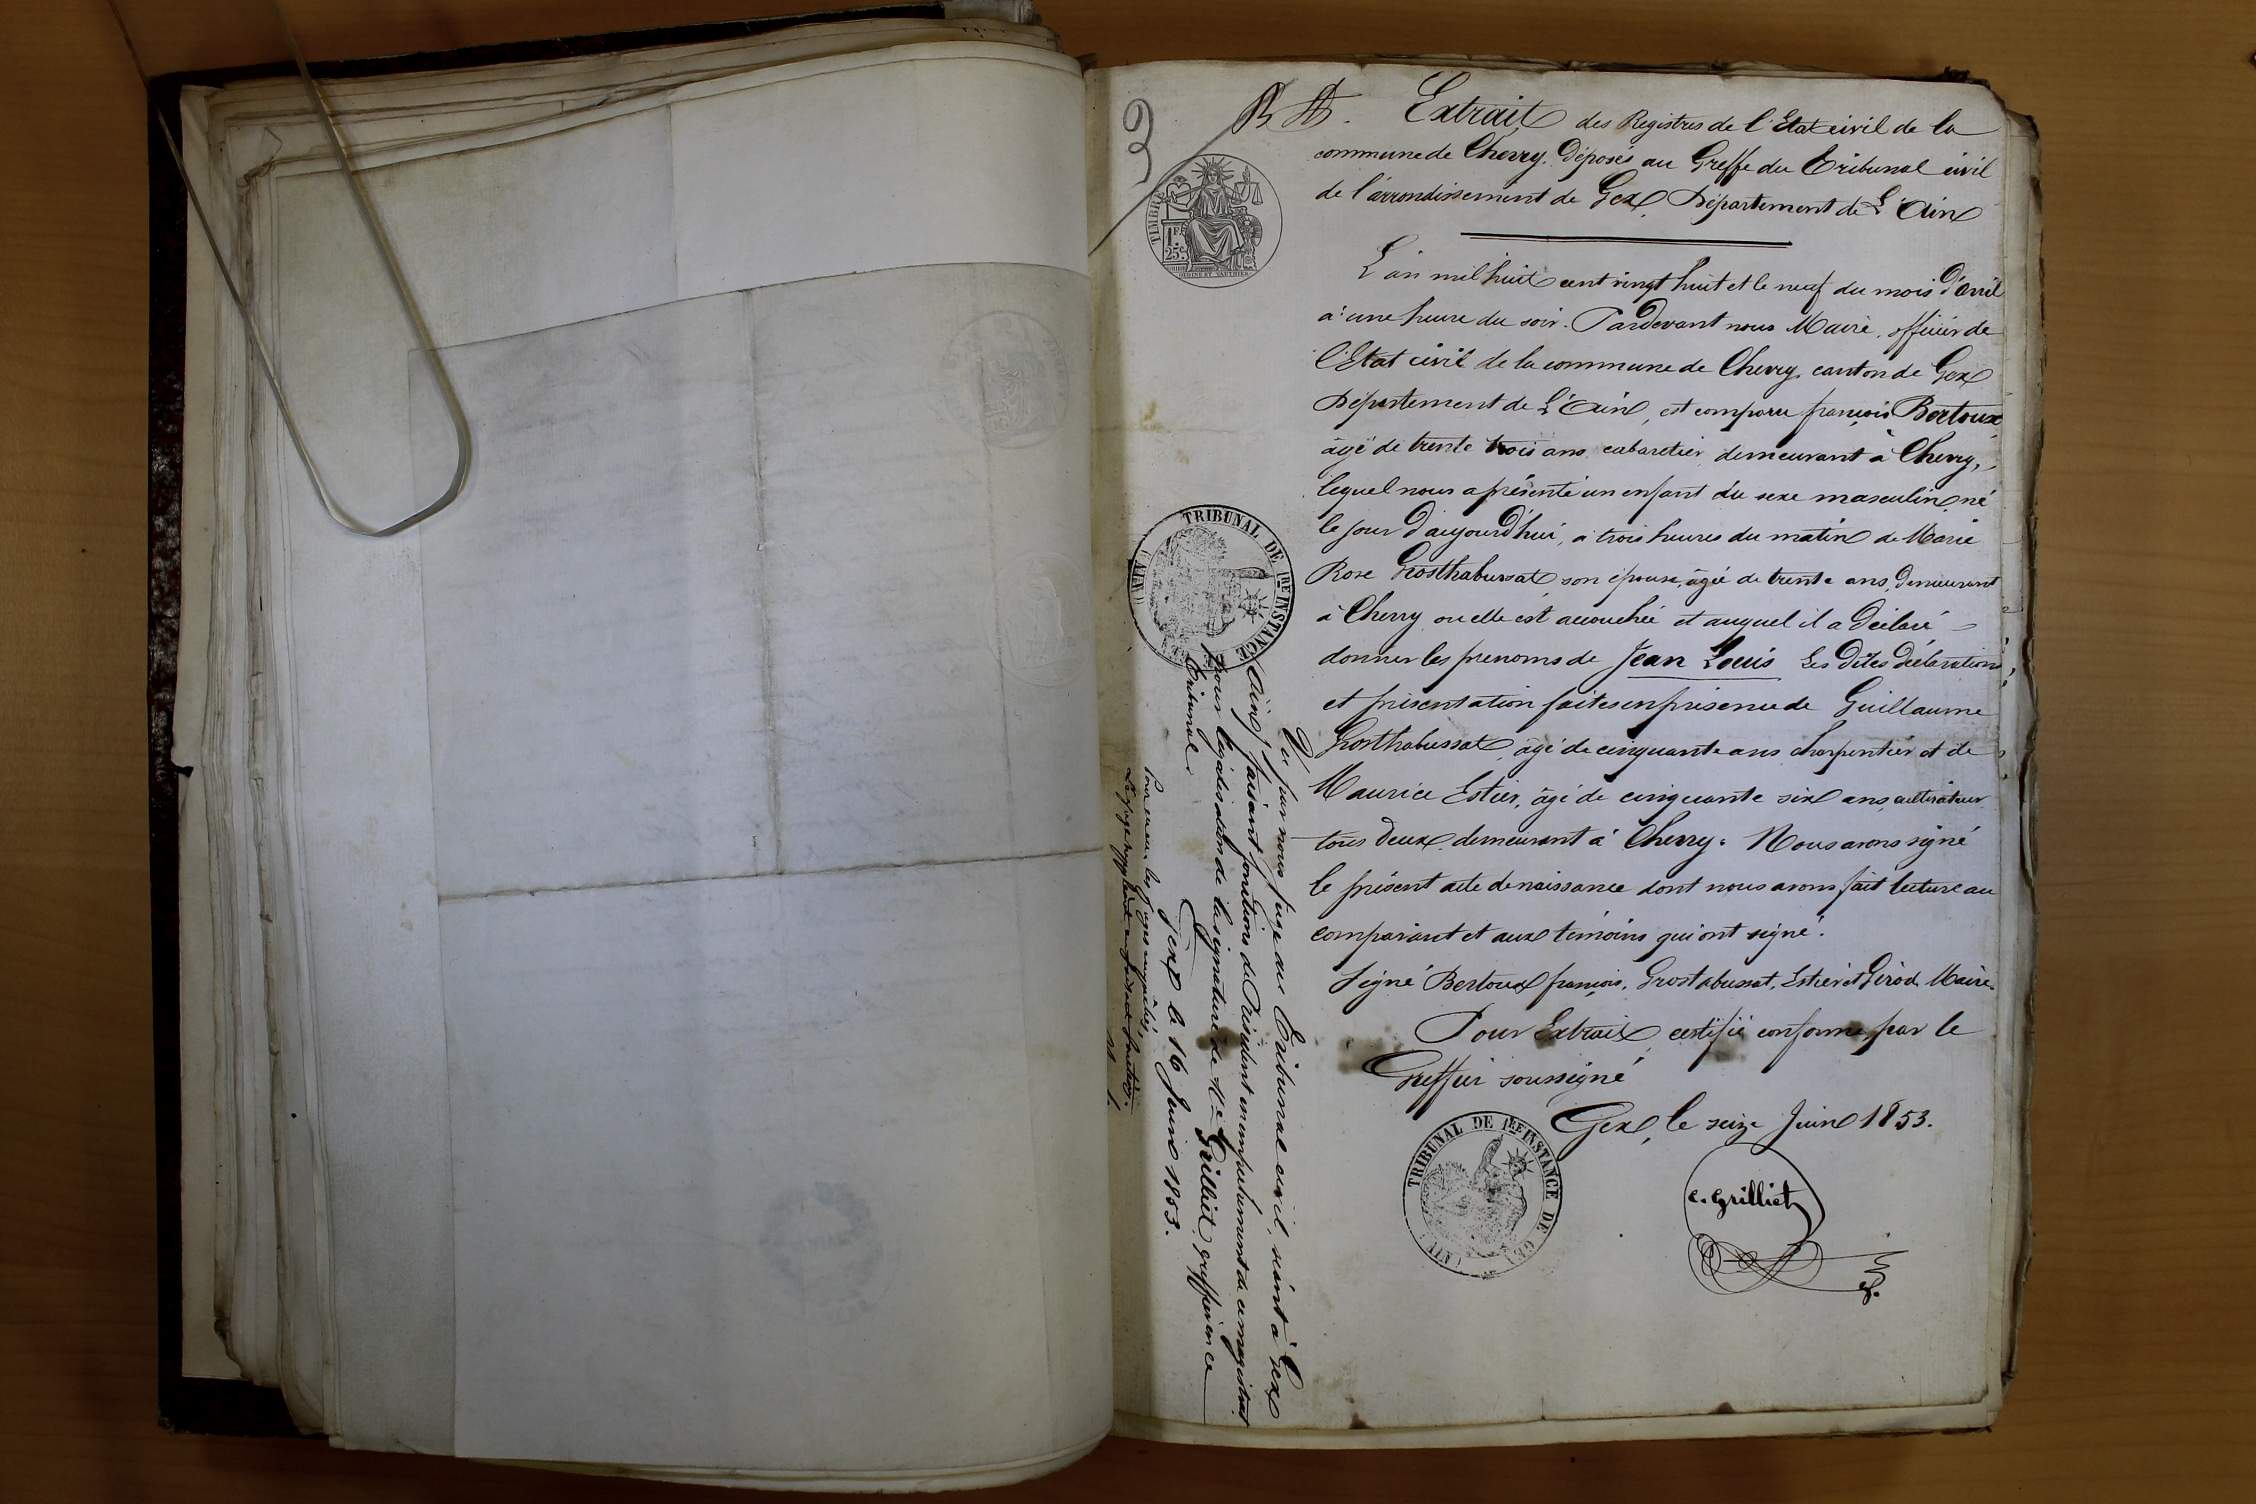 3
Extrait des Registres de l'Etat civil de la
commune de Chevry. Déposés au Greffe du Tribunal civil
de l'arrondissement de Gex, Département de L'Ain
TIMBRE
1F.
25c.
L'an mil huit cent vingt huit et le neuf du mois d'avril
à une heure du soir. Pardevant nous Maire, officier de
l'Etat civil de la commune de Chevry, canton de Gex
Département de L'Ain, est comparu françois Bertoux
âgé de trente trois ans cabaretier demeurant à Chevry,
lequel nous a présenté un enfant du sexe masculin né
le jour d'aujourd'hui, à trois heures du matin de Marie
Rose Grosthabussat, son épouse, âgée de trente ans, demeurant
à Chevry ou elle est accouchée et auquel il a déclaré
donner les prenoms de Jean Louis Les dites déclaration
et présentation faites en présence de Guillaume
Grosthabussat, âgé de cinquante ans charpentier et de
Maurice Estier, âgé de cinquante six ans, cultivateur
tous deux demeurant à Chevry. Nous avons signé
le présent acte de naissance dont nous avons fait lecture au
comparant et aux témoins qui ont signé.
Signé Bertoux françois, Grostabussat, Estier et Girod Maire.
Pour Extrait certifié conforme, par le
Greffier soussigné
Gex, le seize Juin 1853.
TRIBUNAL DE 1RE INSTANCE DE GEX (AIN)
C. Grilliet
TRIBUNAL DE 1RE INSTANCE DE GEX (AIN)
Vu par nous juge au Tribunal civil, séant à Gex
(Ain) faisant fonctions de Président en empêchement de ce magistrat
pour légalisation de la signature de Me Grilliet greffier en ce
Tribunal
Gex le 16 Juin 1853.
les juges empêchés,
Le juge suppléant